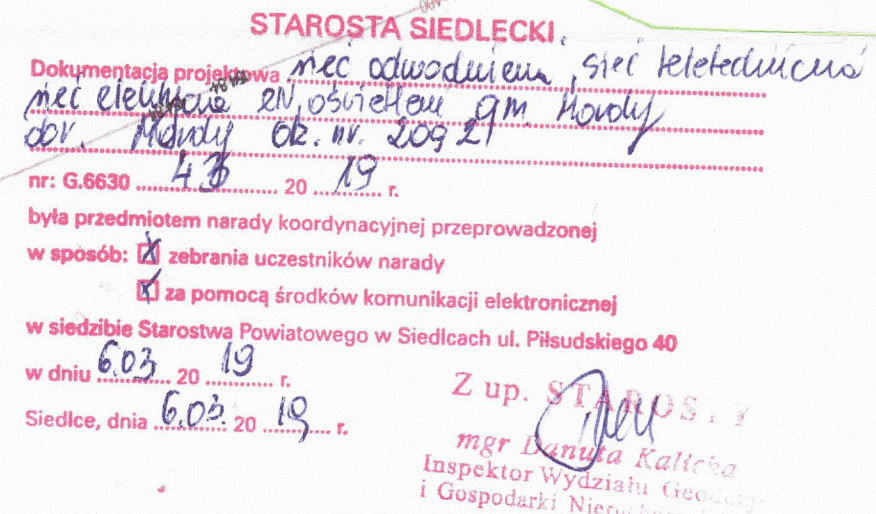 STAROSTA SIEDLECKI
Dokumentacja projektowa sieć odwodnienia, sieć teletechniczna
sieć elektryczna eN, oświetlen gm. Mordy
obr. Mordy dz. nr. 209 21
nr: G.6630 43 20 19 r.
była przedmiotem narady koordynacyjnej przeprowadzonej
w sposób: X zebrania uczestników narady
X za pomocą środków komunikacji elektronicznej
w siedzibie Starostwa Powiatowego w Siedlcach ul. Piłsudskiego 40
w dniu 6.03 20 19 r.
Siedlce, dnia 6.03. 20 19 r.
Z up. STAROSTY
mgr Danuta Kalicka
Inspektor Wydziału
i Gospodarki